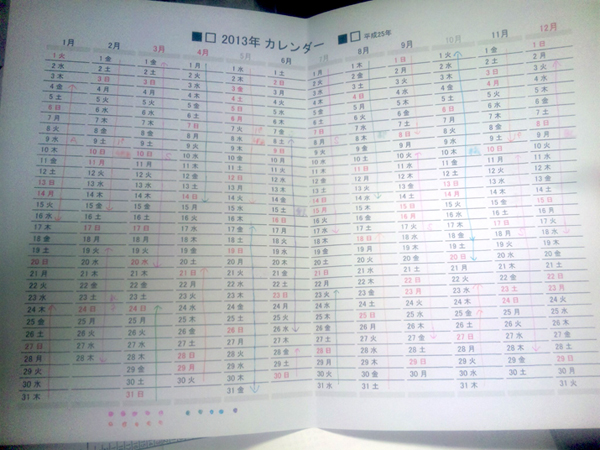 2013年 カレンダー 平成25年
1月 2月 3月 4月 5月 6月 7月 8月 9月 10月 11月 12月
1 火 1 金 1 金 1 月 1 水 1 土 1 月 1 木 1 日 1 火 1 金 1 日
2 水 2 土 2 土 2 火 2 木 2 日 2 火 2 金 2 月 2 水 2 土 2 月
3 木 3 日 3 日 3 水 3 金 3 月 3 水 3 土 3 火 3 木 3 日 3 火
4 金 4 月 4 月 4 木 4 土 4 火 4 木 4 日 4 水 4 金 4 月 4 水
5 土 5 火 5 火 5 金 5 日 5 水 5 金 5 月 5 木 5 土 5 火 5 木
6 日 6 水 6 水 6 土 6 月 6 木 6 土 6 火 6 金 6 日 6 水 6 金
7 月 7 木 7 木 7 日 7 火 7 金 7 日 7 水 7 土 7 月 7 木 7 土
8 火 8 金 8 金 8 月 8 水 8 土 8 月 8 木 8 日 8 火 8 金 8 日
9 水 9 土 9 土 9 火 9 木 9 日 9 火 9 金 9 月 9 水 9 土 9 月
10 木 10 日 10 日 10 水 10 金 10 月 10 水 10 土 10 火 10 木 10 日 10 火
11 金 11 月 11 月 11 木 11 土 11 火 11 木 11 日 11 水 11 金 11 月 11 水
12 土 12 火 12 火 12 金 12 日 12 水 12 金 12 月 12 木 12 土 12 火 12 木
13 日 13 水 13 水 13 土 13 月 13 木 13 土 13 火 13 金 13 日 13 水 13 金
14 月 14 木 14 木 14 日 14 火 14 金 14 日 14 水 14 土 14 月 14 木 14 土
15 火 15 金 15 金 15 月 15 水 15 土 15 月 15 木 15 日 15 火 15 金 15 日
16 水 16 土 16 土 16 火 16 木 16 日 16 火 16 金 16 月 16 水 16 土 16 月
17 木 17 日 17 日 17 水 17 金 17 月 17 水 17 土 17 火 17 木 17 日 17 火
18 金 18 月 18 月 18 木 18 土 18 火 18 木 18 日 18 水 18 金 18 月 18 水
19 土 19 火 19 火 19 金 19 日 19 水 19 金 19 月 19 木 19 土 19 火 19 木
20 日 20 水 20 水 20 土 20 月 20 木 20 土 20 火 20 金 20 日 20 水 20 金
21 月 21 木 21 木 21 日 21 火 21 金 21 日 21 水 21 土 21 月 21 木 21 土
22 火 22 金 22 金 22 月 22 水 22 土 22 月 22 木 22 日 22 火 22 金 22 日
23 水 23 土 23 土 23 火 23 木 23 日 23 火 23 金 23 月 23 水 23 土 23 月
24 木 24 日 24 日 24 水 24 金 24 月 24 水 24 土 24 火 24 木 24 日 24 火
25 金 25 月 25 月 25 木 25 土 25 火 25 木 25 日 25 水 25 金 25 月 25 水
26 土 26 火 26 火 26 金 26 日 26 水 26 金 26 月 26 木 26 土 26 火 26 木
27 日 27 水 27 水 27 土 27 月 27 木 27 土 27 火 27 金 27 日 27 水 27 金
28 月 28 木 28 木 28 日 28 火 28 金 28 日 28 水 28 土 28 月 28 木 28 土
29 火 29 金 29 月 29 水 29 土 29 月 29 木 29 日 29 火 29 金 29 日
30 水 30 土 30 火 30 木 30 日 30 火 30 金 30 月 30 水 30 土 30 月
31 木 31 日 31 金 31 水 31 土 31 木 31 火